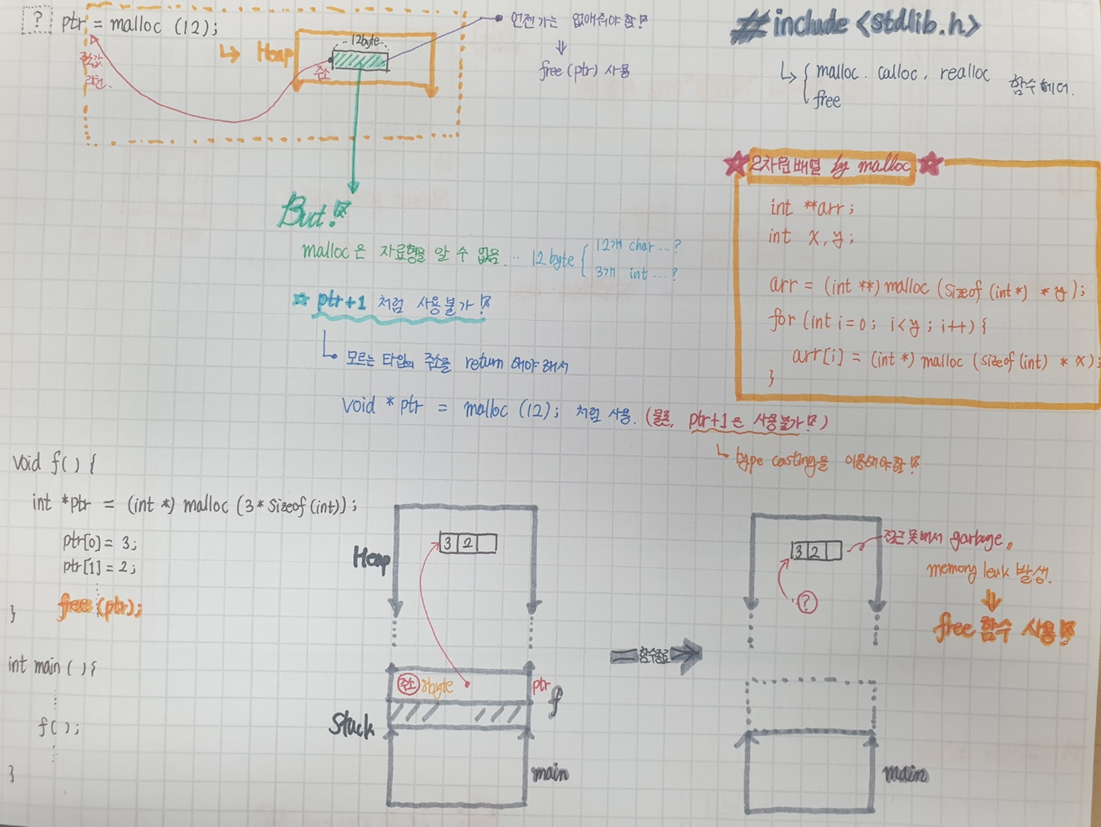 ? ptr = malloc (12);
12byte
Heap
주소
언젠가는 없애줘야 함!
free (ptr) 사용
#include <stdlib.h>
malloc. calloc, realloc
free
But!
malloc은 자료형을 알 수 없음... 12byte
12개 char ...?
3개 int ...?
ptr+1 처럼 사용불가!
모르는 타입의 주소를 return 해야 해서
void * ptr = malloc (12); 처럼 사용. (물론, ptr+1은 사용불가!)
type casting을 이용해야함!
2차원 배열 by malloc
int **arr;
int x, y;
arr = (int **) malloc (sizeof (int*) * y);
for (int i=0; i<y; i++) {
arr[i] = (int*) malloc (sizeof (int) * x);
}
void f() {
int *ptr = (int *) malloc (3* sizeof (int));
ptr[0] = 3;
ptr[1] = 2;
free (ptr);
}
int main () {
f();
}
Heap
3 2
주소 8byte
ptr
f
Stack
main
함수종료
3 2
?
접근 못해서 garbage,
memory leak 발생.
free 함수 사용!
main